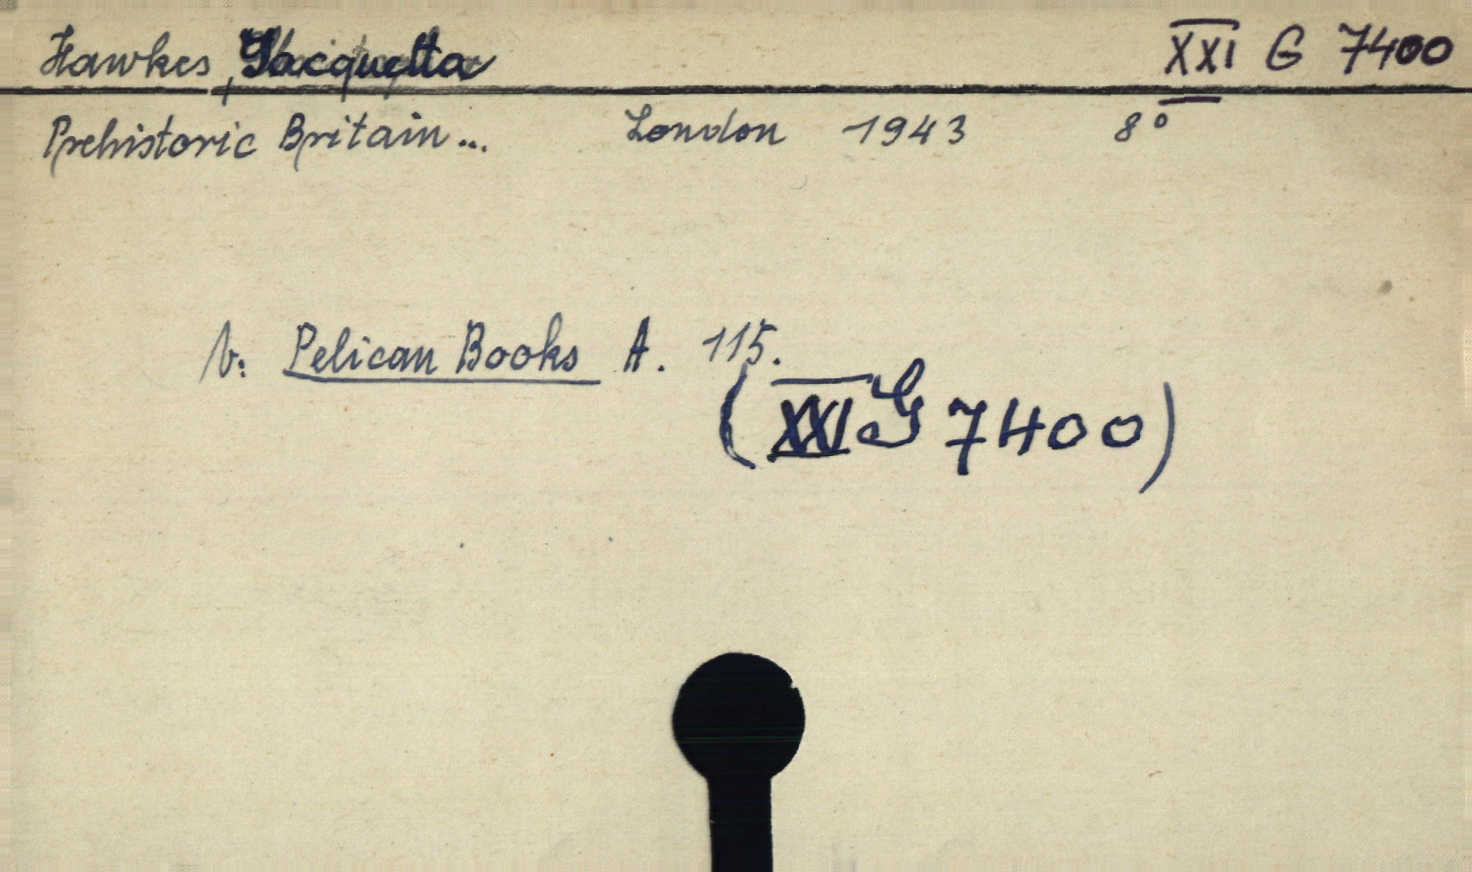 Hawkes, Jacquetta XXI G 7400
Prehistoric Britain... London 1943 8°
v: Pelican Books A. 115.
(XXI G 7400)